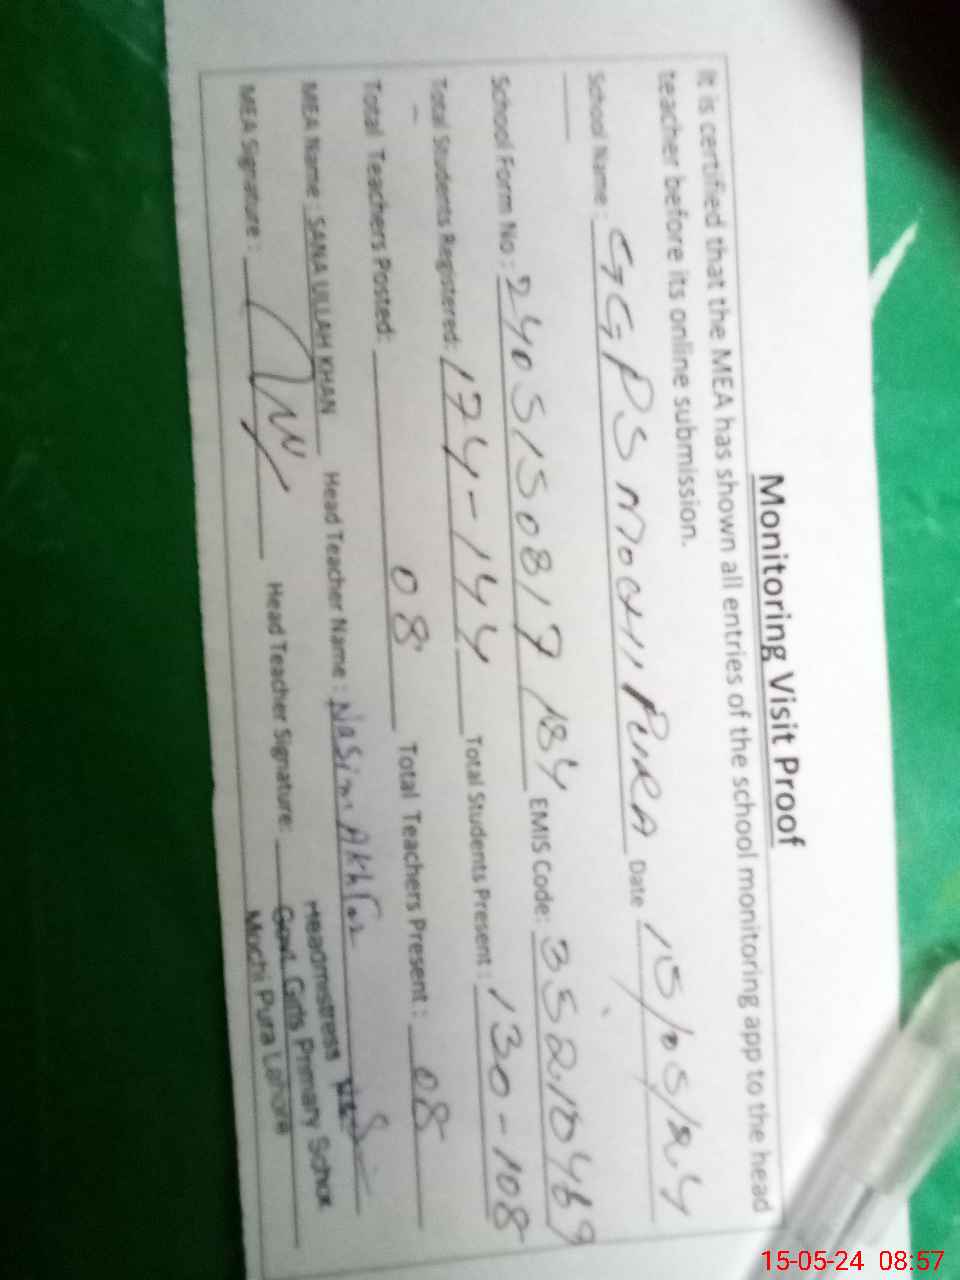 Monitoring Visit Proof
It is certified that the MEA has shown all entries of the school monitoring app to the head
teacher before its online submission.
School Name : GGPS MOCHI PURA Date 15/05/24
School Form No : 2405150817 184 EMIS Code: 35210469
Total Students Registered: 174-144 Total Students Present : 130-108
Total Teachers Posted: 08 Total Teachers Present : 08
MEA Name : SANA ULLAH KHAN Head Teacher Name : Nasim Akhtar
MEA Signature : Head Teacher Signature:
Headmistress
Govt. Girls Primary School
Mochi Pura Lahore
15-05-24 08:57